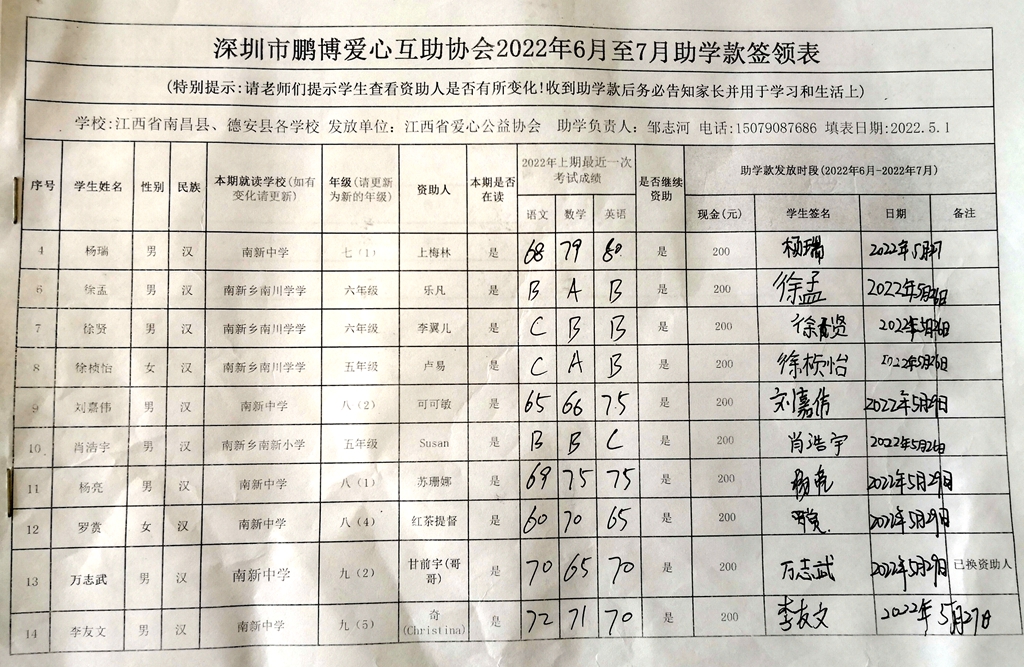 深圳市鹏博爱心互助协会2022年6月至7月助学款签领表
(特别提示:请老师们提示学生查看资助人是否有所变化!收到助学款后务必告知家长并用于学习和生活上)
学校:江西省南昌县、德安县各学校 发放单位：江西省爱心公益协会 助学负责人：邹志河 电话:15079087686 填表日期:2022.5.1
序号 学生姓名 性别 民族 本期就读学校(如有变化请更新) 年级(请更新为新的年级) 资助人 本期是否在读 2022年上期最近一次考试成绩 是否继续资助 助学款发放时段(2022年6月-2022年7月)
语文 数学 英语 现金(元) 学生签名 日期 备注
4 杨瑞 男 汉 南新中学 七（1） 上梅林 是 68 79 60 是 200 杨瑞 2022年5月27
6 徐孟 男 汉 南新乡南川学学 六年级 乐凡 是 B A B 是 200 徐孟 2022年5月26日
7 徐贤 男 汉 南新乡南川学学 六年级 李翼儿 是 C B B 是 200 徐贤 2022年5月26日
8 徐桢怡 女 汉 南新乡南川学学 五年级 卢易 是 C A B 是 200 徐桢怡 2022年5月26日
9 刘嘉伟 男 汉 南新中学 八（2） 可可敏 是 65 66 75 是 200 刘嘉伟 2022年5月29日
10 肖浩宇 男 汉 南新乡南新小学 五年级 Susan 是 B B C 是 200 肖浩宇 2022年5月26日
11 杨亮 男 汉 南新中学 八（1） 苏珊娜 是 69 75 75 是 200 杨亮 2022年5月29日
12 罗赏 女 汉 南新中学 八（4） 红茶提督 是 60 70 65 是 200 罗赏 2022年5月29日
13 万志武 男 汉 南新中学 九（2） 甘前宇(哥哥) 是 70 65 70 是 200 万志武 2022年5月29日 已换资助人
14 李友文 男 汉 南新中学 九（5） 奇(Christina) 是 72 71 70 是 200 李友文 2022年5月27日